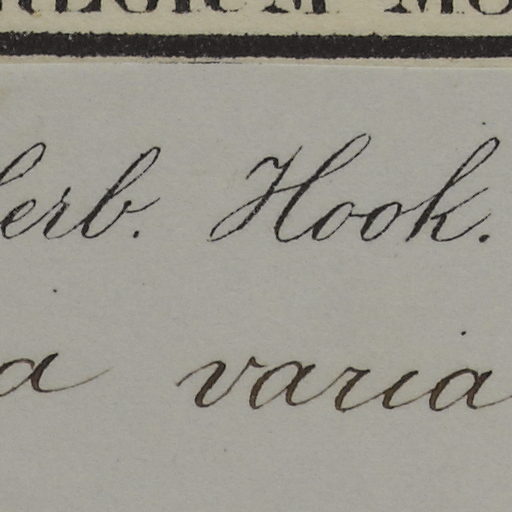 erb. Hook.
a varia